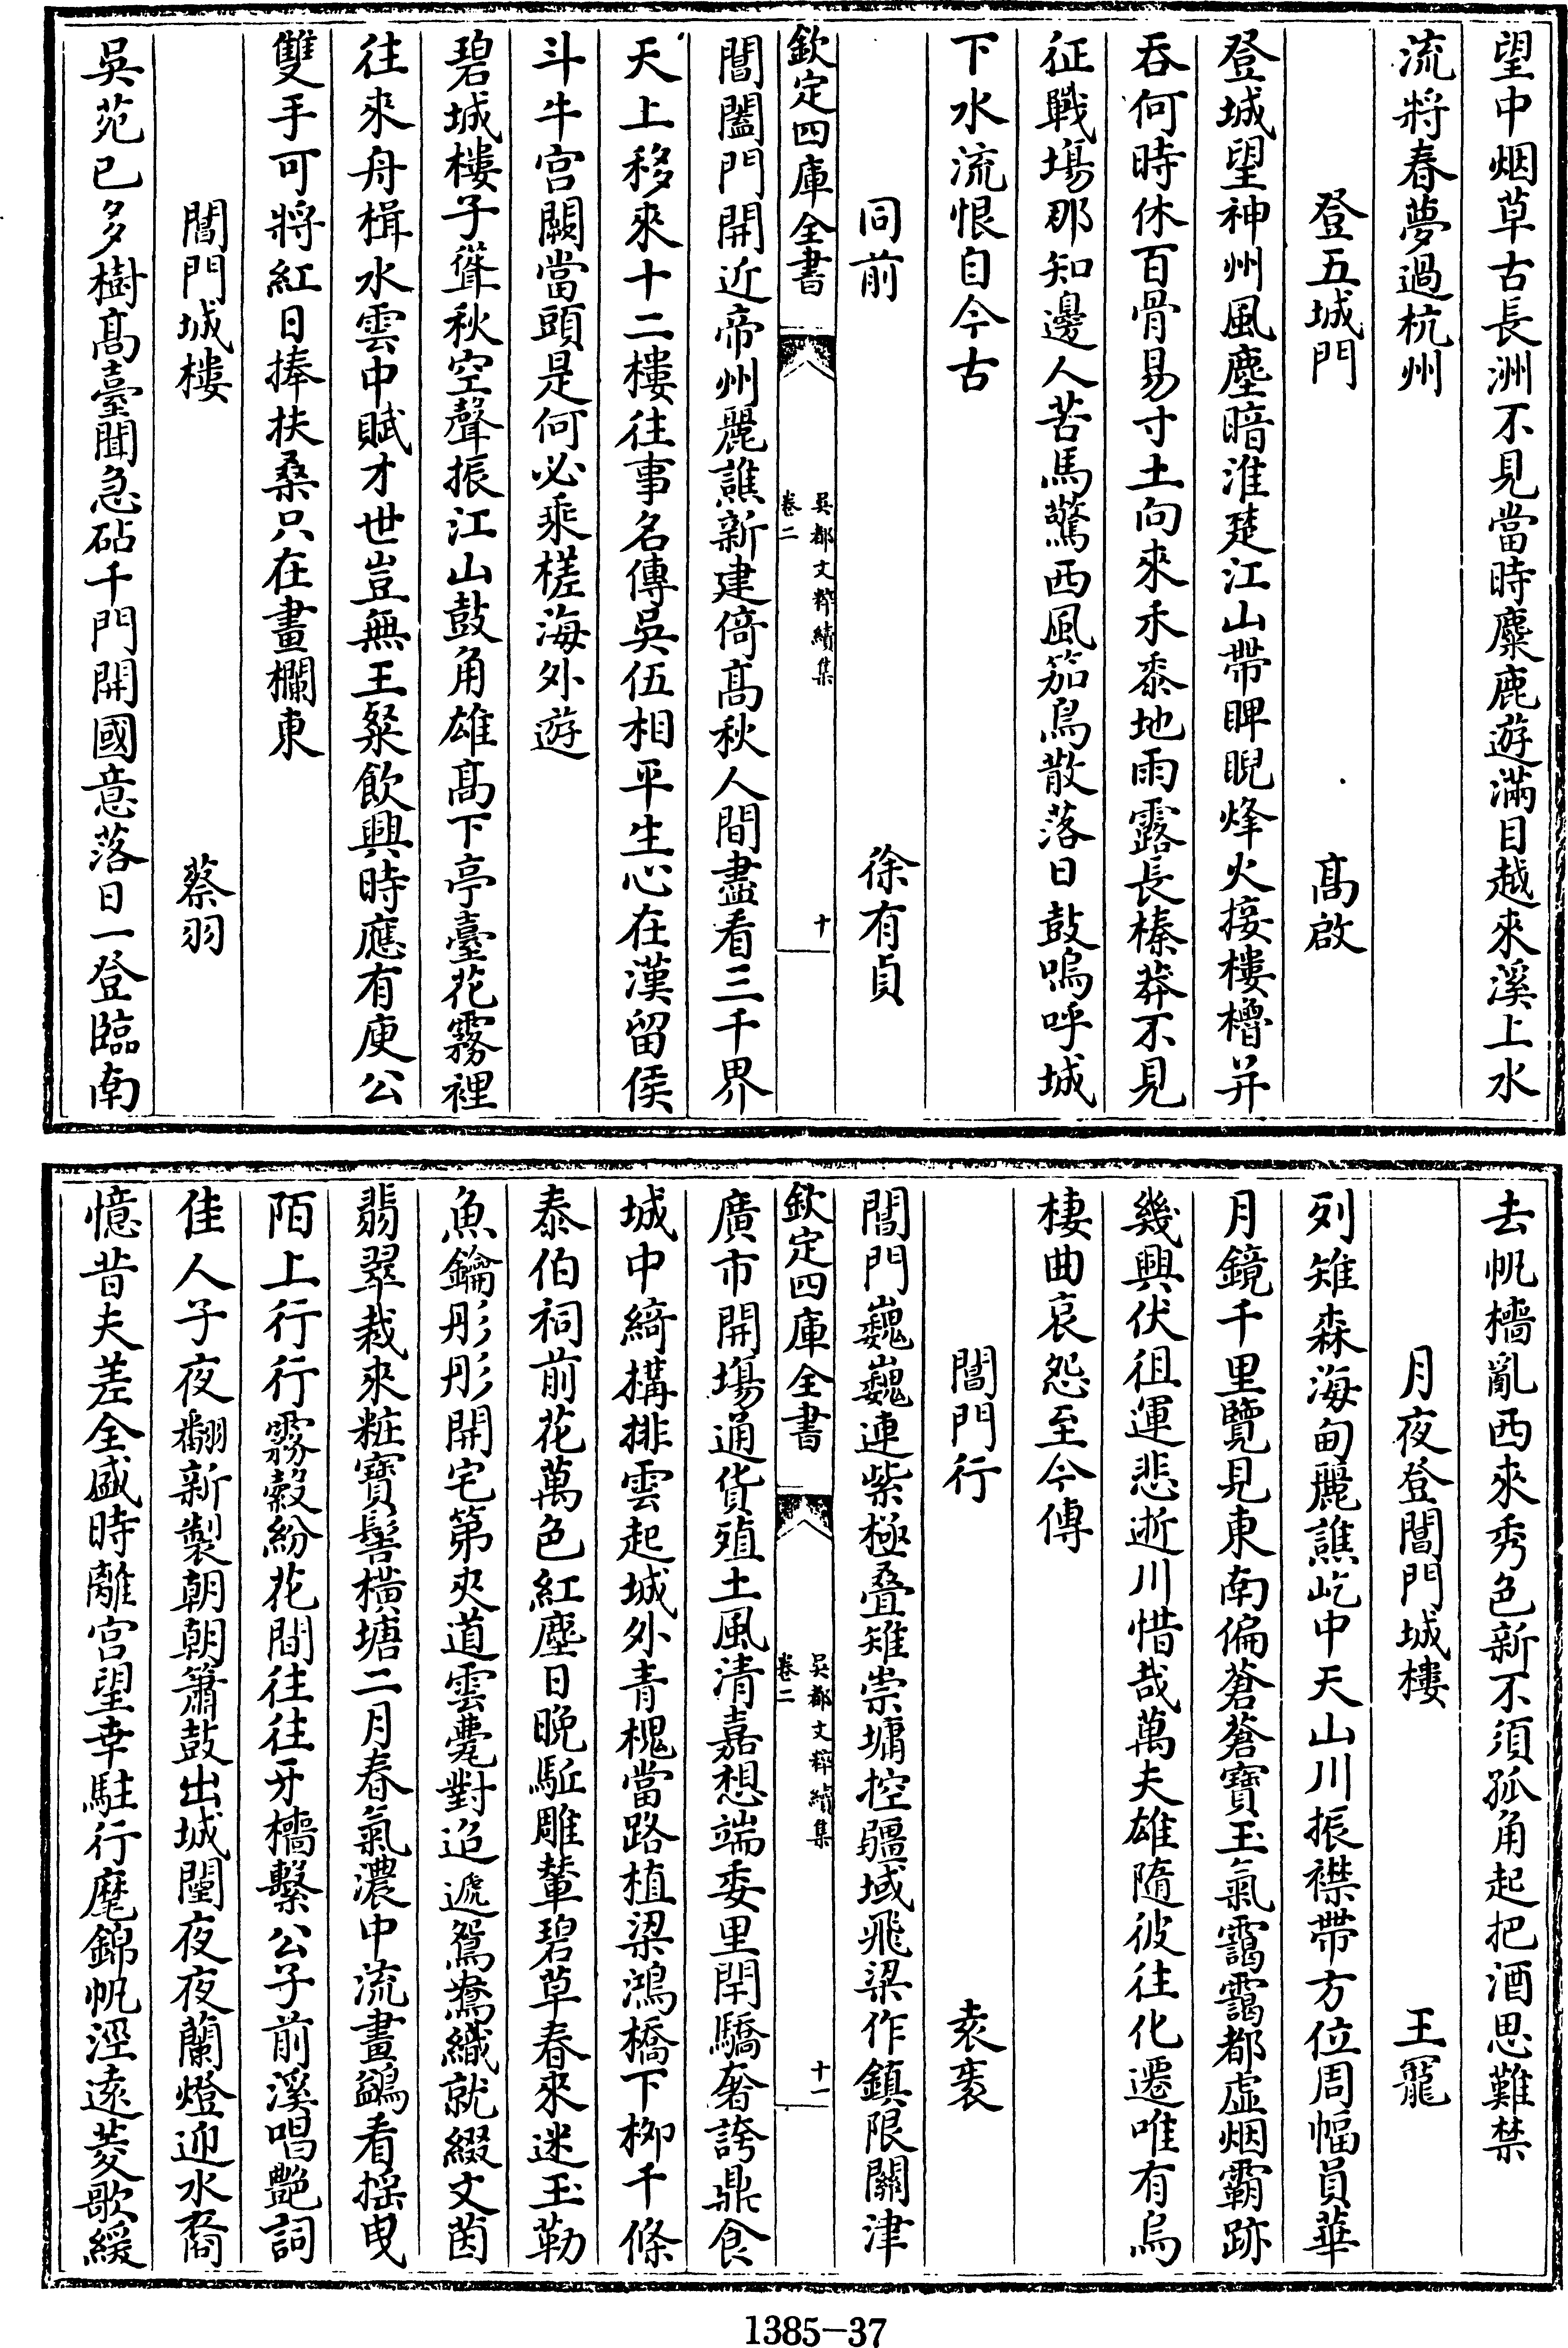 望中烟草古長洲不見當時麋鹿遊滿目越來溪上水
流將春夢過杭州
登五城門 高啟
登城望神州風塵暗淮楚江山帶睥睨烽火接樓櫓并
吞何時休百骨易寸土向來禾黍地雨露長榛莽不見
征戰塲那知邊人苦馬驚西風笳鳥散落日鼓嗚呼城
下水流恨自今古
同前 徐有貞
欽定四庫全書 吳都文粹續集 卷二 十
閶闔門開近帝州麗譙新建倚髙秋人間盡看三千界
天上移來十二樓往事名傳吳伍相平生心在漢留侯
斗牛宫闕當頭是何必乘槎海外遊
碧城樓子聳秋空聲振江山鼓角雄髙下亭臺花霧裡
往來舟楫水雲中賦才世豈無王粲飲興時應有庾公
雙手可將紅日捧扶桑只在畫欄東
閶門城樓 蔡羽
吳苑已多樹髙臺聞急砧千門開國意落日一登臨南
去帆檣亂西來秀色新不須孤角起把酒思難禁
月夜登閶門城樓 王寵
列雉森海甸麗譙屹中天山川振襟帶方位周幅員華
月鏡千里覽見東南偏蒼蒼寶玉氣靄靄都虚烟霸跡
幾興伏徂運悲逝川惜哉萬夫雄隨彼往化遷唯有烏
棲曲哀怨至今傳
閶門行 袁袠
閶門巍巍連紫極叠雉崇墉控疆域飛梁作鎮限關津
欽定四庫全書 吳都文粹續集 卷二 十一
廣市開塲通貨殖土風清嘉想端委里閈驕奢誇鼎食
城中綺構排雲起城外青槐當路植梁鴻橋下栁千條
泰伯祠前花萬色紅塵日晚駈雕輦碧草春來迷玉勒
魚鑰彤彤開宅第夾道雲甍對迢遞鴛鴦織就綴文茵
翡翠裁來粧寶髻橫塘二月春氣濃中流畫鷁看摇曳
陌上行行霧縠紛花間往往牙檣繫公子前溪唱艷詞
佳人子夜翻新製朝朝簫鼓出城闉夜夜蘭燈迎水裔
憶昔夫差全盛時離宫望幸駐行麾錦帆涇逺菱歌緩
1385-37